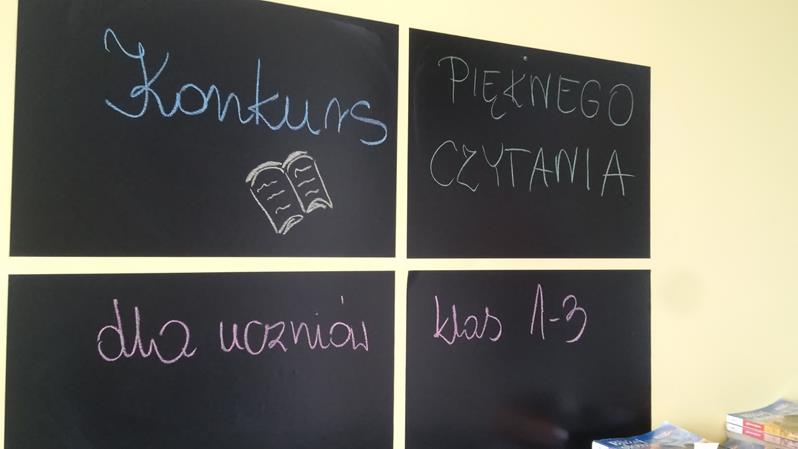 Konkurs
PIĘKNEGO
CZYTANIA
dla uczniów
klas 1-3